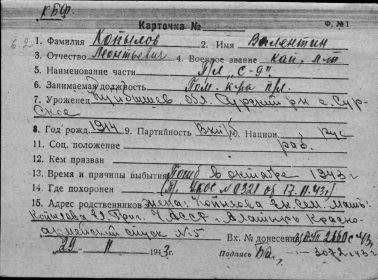 КБФ.
Карточка № Ф. №1
1. Фамилия Копылов 2. Имя Валентин
3. Отчество Леонтьевич 4. Военное звание кап. л-т
5. Наименование части П/Л "С-9"
6. Занимаемая должность Пом. к-ра пл.
7. Уроженец Куйбышев. обл. Сурский р-н с. Сур-
ское
8. Год рожд. 1914 9. Партийность ВКП(б) Национ. рус
11. Соц. положение раб.
12. Кем призван
13. Время и причины выбытия Погиб в октябре 1943 г
14. Где похоронен № 0321 от 17.11.43 г
15. Адрес родственников жена: мать:
Копылова Ч. АССР. г. Алатырь Красно-
армейский спуск № 5 Вх. № донесения
29 11 1943 г. Подпись